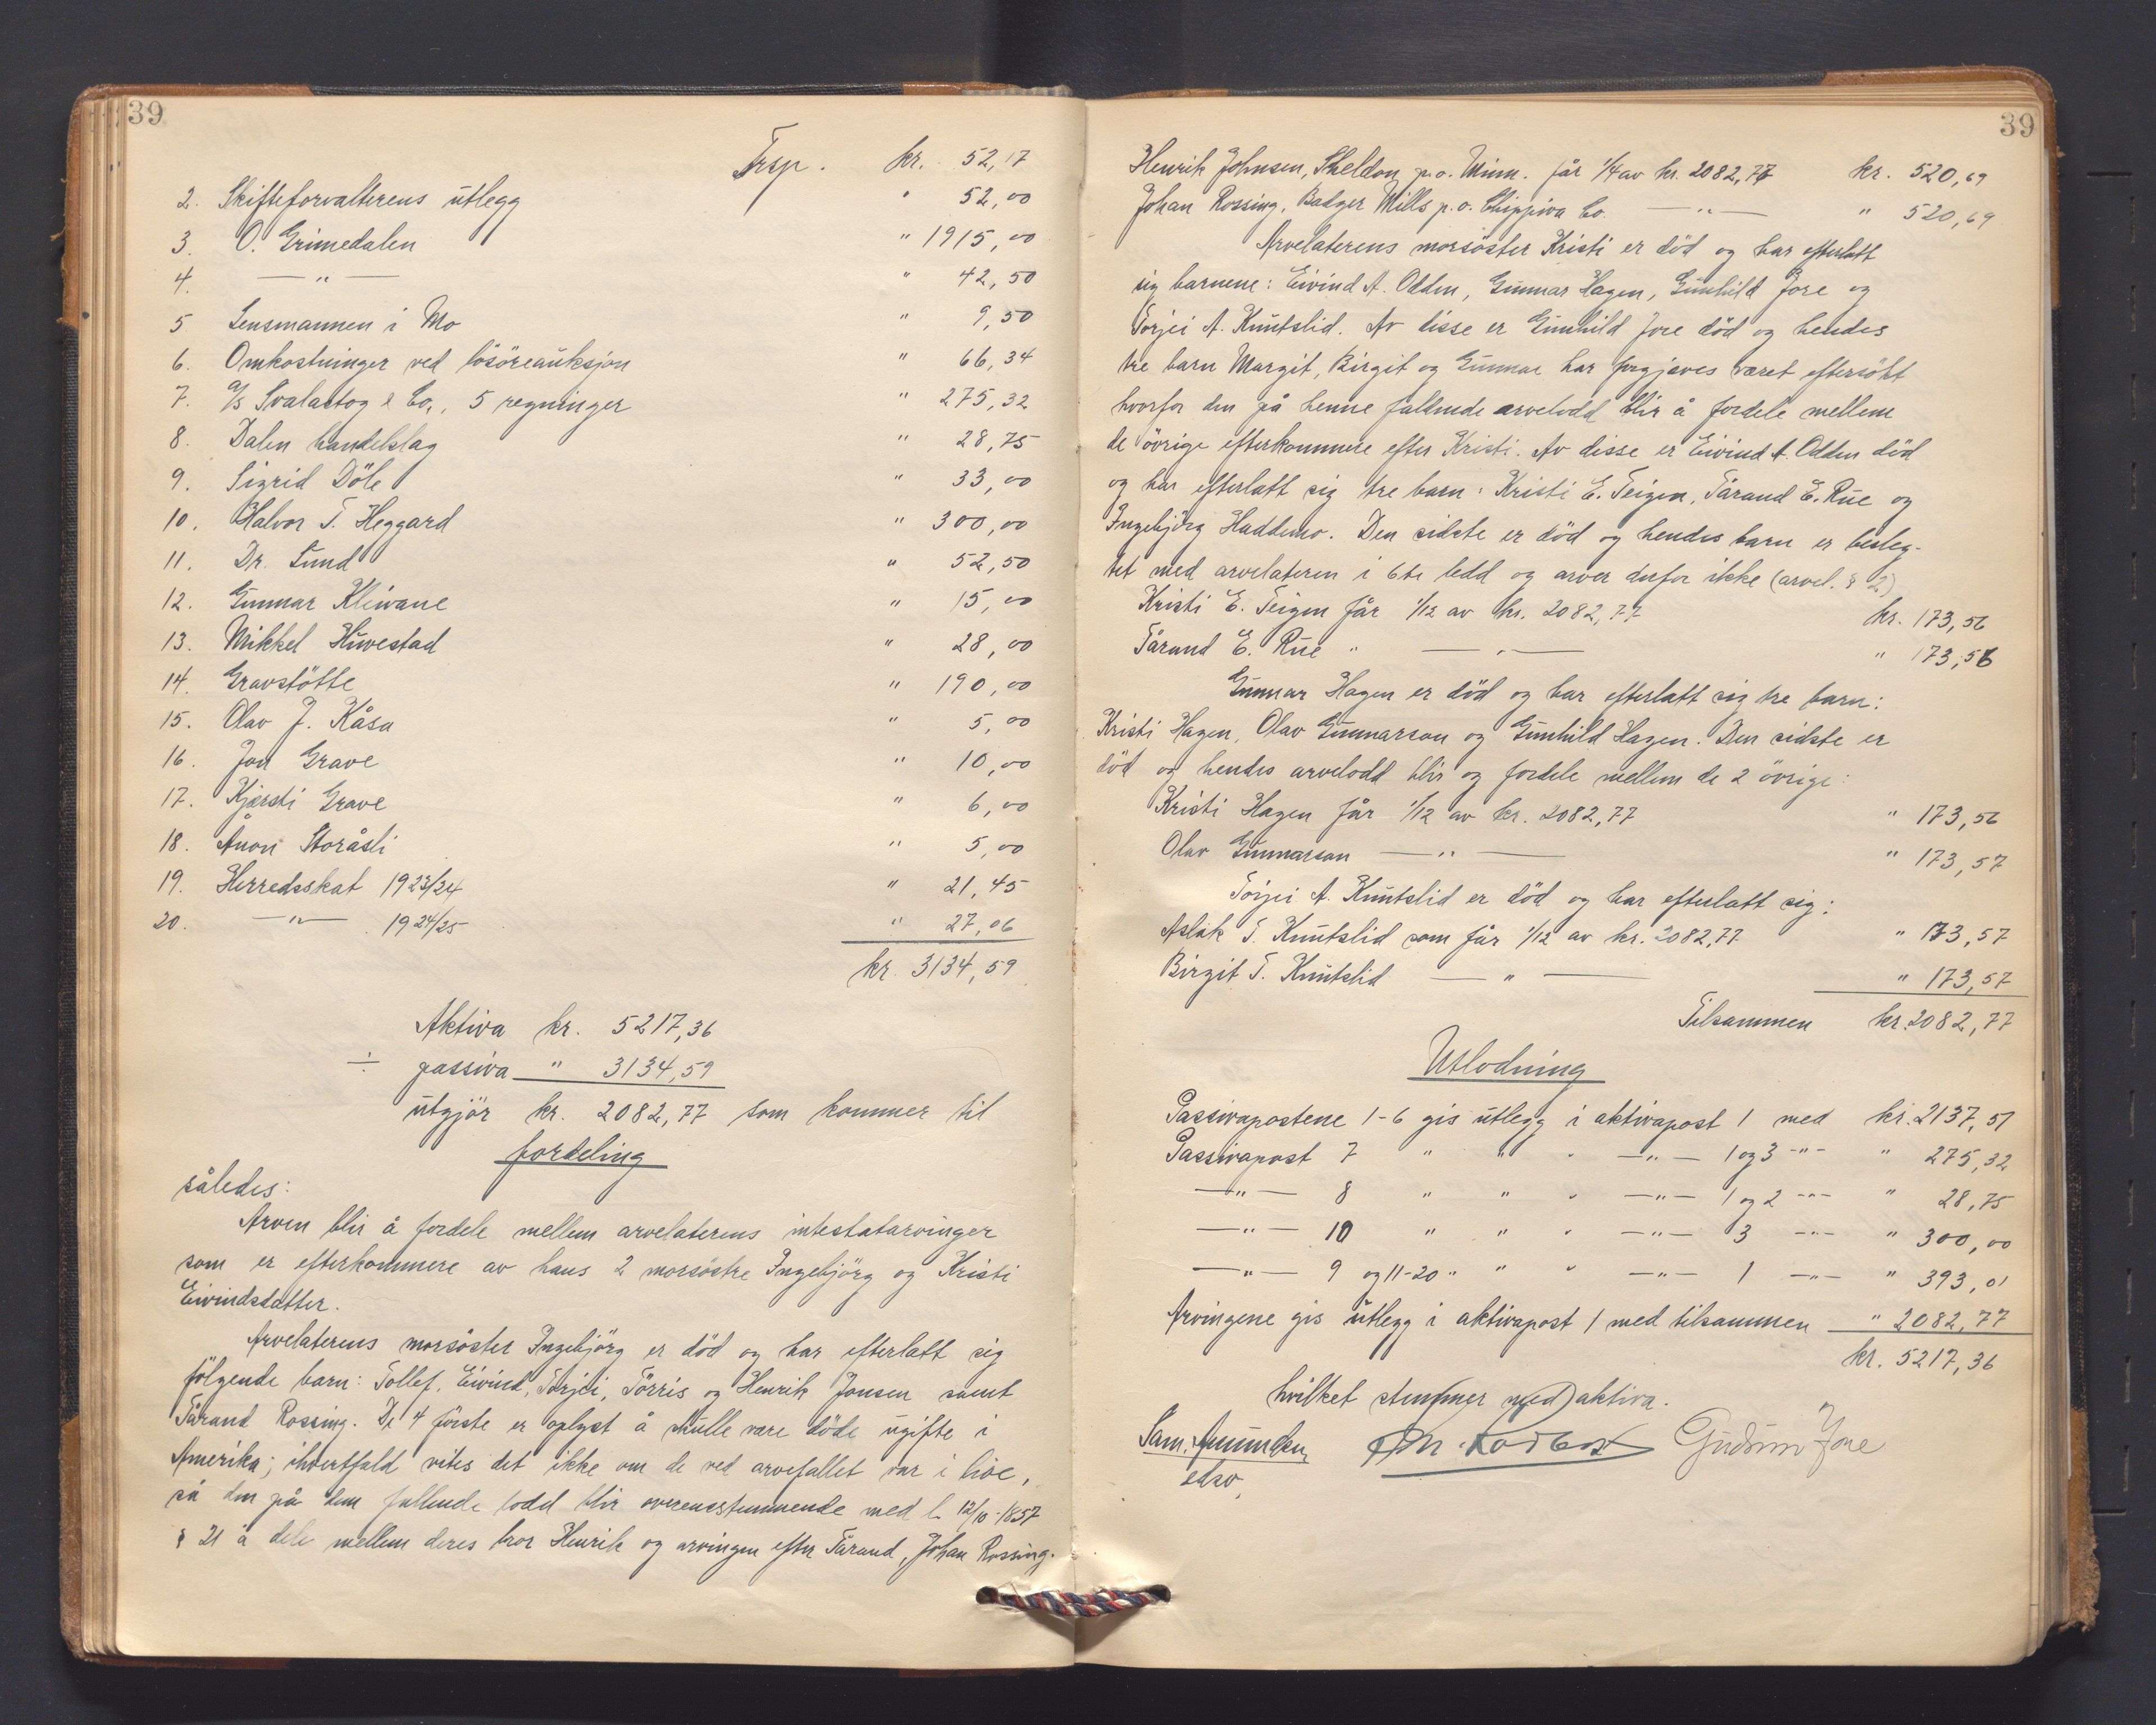 39
Trsp. kr. 52,17
2. Skifteforvalterens utlegg " 52,00
3. O. Grimedalen " 1915,00
4. —"— " 42,50
5 Lensmannen i Mo " 9,50
6. Omkostninger ved lösöreauksjon " 66,34
7. A/S Svalastog & Co., 5 regninger " 275,32
8. Dalen handelslag " 28,75
9. Sigrid Döle " 33,00
10. Halvor T. Heggard " 300,00
11. Dr. Lund " 52,50
12. Gunnar Kliwane " 15,00
13. Mikkel Huvestad " 28,00
14. Gravstötte " 190,00
15. Olav J. Kåsa " 5,00
16. Jon Grave " 10,00
17. Kjersti Grave " 6,00
18. Ånon Storåsli " 5,00
19. Herredsskat 1923/24 " 21,45
20. —"— 1924/25 " 27,06
kr. 3134,59
Aktiva kr. 5217,36
÷ passiva " 3134,59
utgjör kr. 2082,77 som kommer til
fordeling
således:
Arven blir å fordele mellem arvelaterens intestatarvinger
som er efterkommere av hans 2 morsöstre Ingebjörg og Kristi
Eivindsdatter.
Arvelaterens morsöster Ingebjörg er död og har efterlatt sig
fölgende barn: Tollef, Eivind, Torjei, Törris og Henrik Jonsen samt
Tårand Rossing. De 4 förste er oplyst å skulle være döde ugifte i
Amerika; ihvertfald vites det ikke om de ved arvefallet var i live,
så den på dem fallende lodd blir overensstemmende med l. 12/10-1857
§ 21 å dele mellem deres bror Henrik og arvingen efter Tårand, Johan Rossing.
39
Henrik Johnsen, Sheldon p.o. Minn. får 1/4 av kr. 2082,77 kr. 520,69
Johan Rossing, Badger Mills p.o. Chippiva Co. —"— " 520,69
Arvelaterens morsöster Kristi er död og har efterlatt
sig barnene: Eivind A. Odden, Gunnar Hagen, Gunhild Jore og
Torjei A. Knutslid. Av disse er Gunhild Jore död og hendes
tre barn Margit, Birgit og Gunnar har forgjæves været eftersökt
hvorfor den på henne faldende arvelodd blir å fordele mellem
de övrige efterkommere efter Kristi. Av disse er Eivind A. Odden död
og har efterlatt sig tre barn: Kristi E. Teigen, Tårand E. Rue og
Ingebjörg Haddemo. Den sidste er död og hendes barn er besleg-
tet med arvelateren i 6te ledd og arver derfor ikke (arvel. § 2)
Kristi E. Teigen får 1/12 av kr. 2082,77 kr. 173,56
Tårand E. Rue " —"— " 173,56
Gunnar Hagen er död og har efterlatt sig tre barn:
Kristi Hagen, Olav Gunnarson og Gunhild Hagen. Den sidste er
död og hendes arvelodd blir og fordele mellem de 2 övrige:
Kristi Hagen får 1/12 av kr. 2082,77 " 173,56
Olav Gunnarson —"— " 173,57
Torjei A. Knutslid er död og har efterlatt sig:
Aslak T. Knutslid som får 1/12 av kr. 2082,77 " 173,57
Birgit T. Knutslid —"— " 173,57
Tilsammen kr. 2082,77
Utlodning
Passivapostene 1-6 gis utlegg i aktivapost 1 med kr. 2137,51
Passivapost 7 " " " —"— 1 og 3 -"- " 275,32
—"— 8 " " " —"— 1 og 2 -"- " 28,75
—"— 10 " " " —"— 3 -"- " 300,00
—"— 9 og 11-20 " " " —"— 1 -"- " 393,01
Arvingene gis utlegg i aktivapost 1 med tilsammen " 2082,77
kr. 5217,36
hvilket stemmer med aktiva.
Sam. Amundsen Gudrun Jore
edsv.